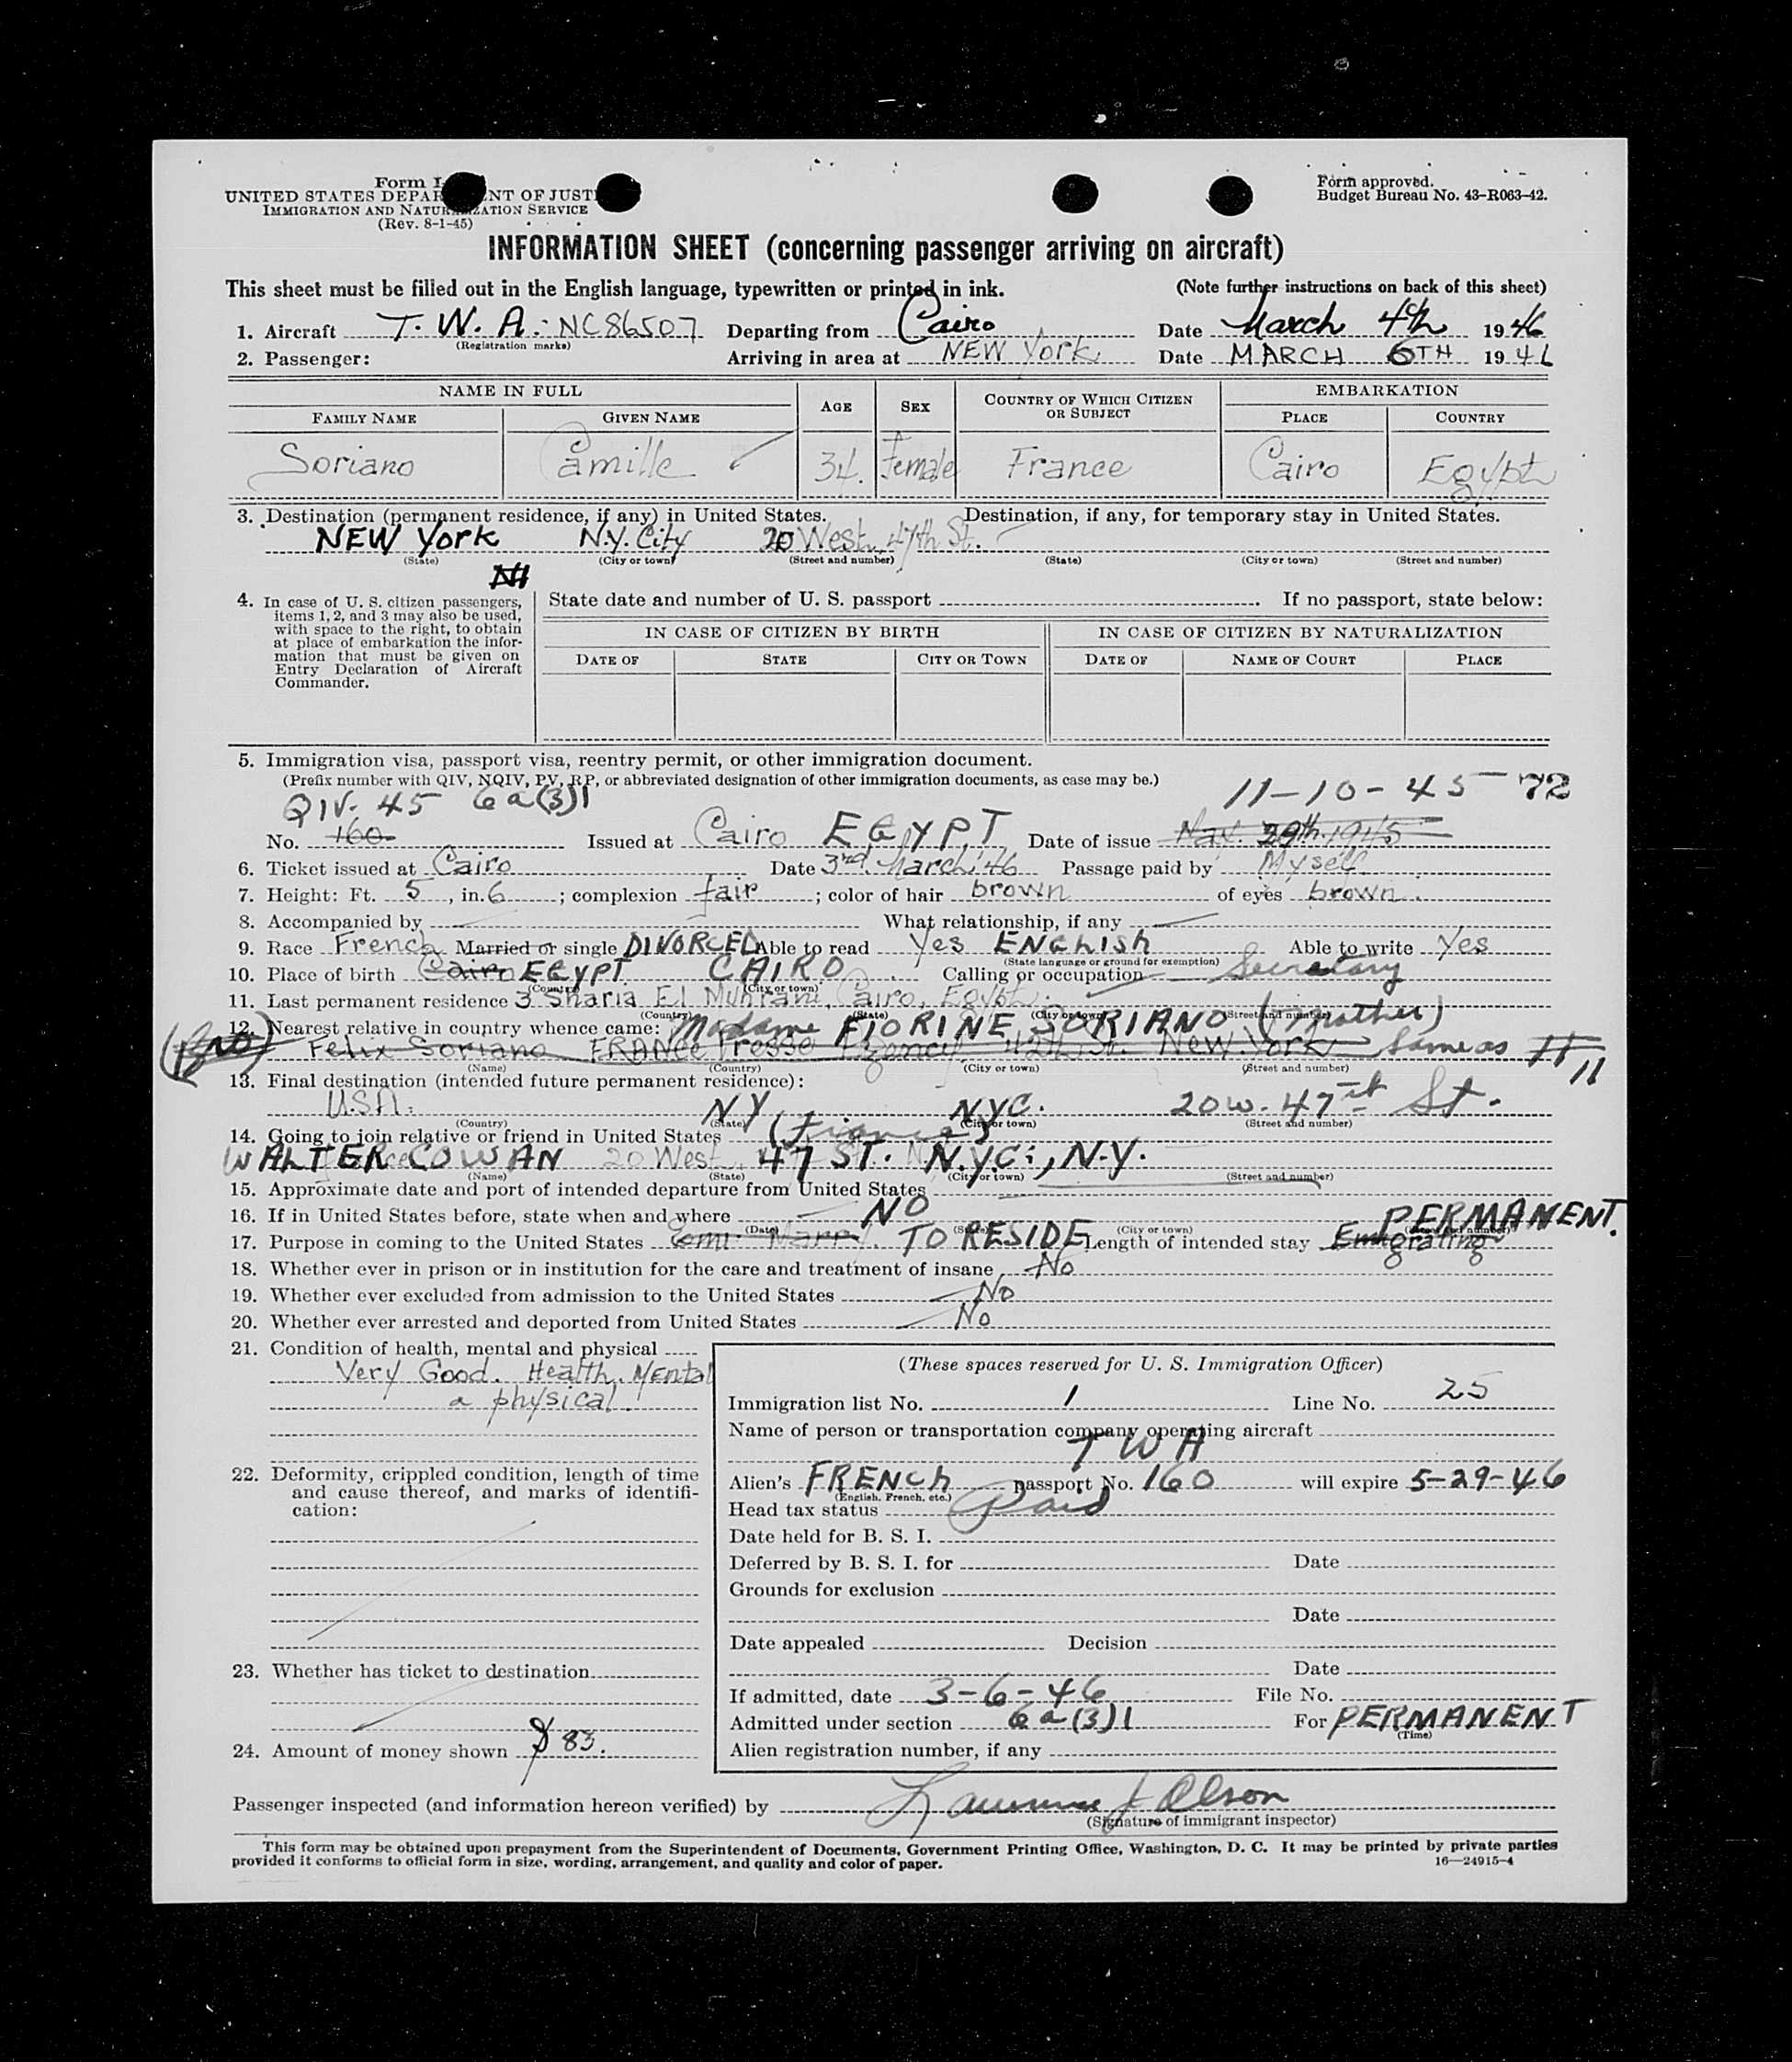 Form I-
UNITED STATES DEPAR NT OF JUST
IMMIGRATION AND NATURALIZATION SERVICE
(Rev. 8-1-45)
Form approved.
Budget Bureau No. 43-R063-42.
INFORMATION SHEET (concerning passenger arriving on aircraft)
This sheet must be filled out in the English language, typewritten or printed in ink. (Note further instructions on back of this sheet)
1. Aircraft T. W. A. - NC86507 Departing from Cairo Date March 4th 1946
(Registration marks)
2. Passenger: Arriving in area at NEW York Date MARCH 6TH 1946
NAME IN FULL AGE SEX COUNTRY OF WHICH CITIZEN OR SUBJECT EMBARKATION
FAMILY NAME GIVEN NAME PLACE COUNTRY
Soriano Camille 34. Female France Cairo Egypt
3. Destination (permanent residence, if any) in United States. Destination, if any, for temporary stay in United States.
NEW York N.Y. City 20 West 47th St.
(State) (City or town) (Street and number) (State) (City or town) (Street and number)
4. In case of U. S. citizen passengers, items 1, 2, and 3 may also be used, with space to the right, to obtain at place of embarkation the information that must be given on Entry Declaration of Aircraft Commander.
State date and number of U. S. passport If no passport, state below:
IN CASE OF CITIZEN BY BIRTH IN CASE OF CITIZEN BY NATURALIZATION
DATE OF STATE CITY OR TOWN DATE OF NAME OF COURT PLACE
5. Immigration visa, passport visa, reentry permit, or other immigration document.
(Prefix number with QIV, NQIV, PV, RP, or abbreviated designation of other immigration documents, as case may be.)
QIV- 45 6a(3)1 11-10-45 72
No. 160 Issued at Cairo EGYPT Date of issue 29th 1945
6. Ticket issued at Cairo Date 3rd March '46 Passage paid by Myself
7. Height: Ft. 5, in. 6; complexion fair; color of hair brown of eyes brown.
8. Accompanied by What relationship, if any
9. Race French Married or single DIVORCED Able to read Yes ENGLISH Able to write Yes
(State language or ground for exemption)
10. Place of birth Cairo EGYPT CAIRO Calling or occupation Secretary
(Country) (City or town)
11. Last permanent residence 3 Sharia El Muhrani, Cairo, Egypt.
(Country) (State) (City or town) (Street and number)
12. Nearest relative in country whence came: Madame FIORINE SORIANO (mother)
Felix Soriano FRANCE Presse Agency 42th St. New York Same as # 11
(Name) (Country) (City or town) (Street and number)
13. Final destination (intended future permanent residence):
U.S.A. NY NYC. 20 W. 47 St.
(Country) (State) (City or town) (Street and number)
14. Going to join relative or friend in United States (Fiance)
WALTER COWAN 20 West 47 ST. N.Y.C., N.Y.
(Name) (State) (City or town) (Street and number)
15. Approximate date and port of intended departure from United States
16. If in United States before, state when and where NO
(Date) (State) (City or town) (Street and number)
17. Purpose in coming to the United States TO RESIDE Length of intended stay Emigrating PERMANENT.
18. Whether ever in prison or in institution for the care and treatment of insane No
19. Whether ever excluded from admission to the United States No
20. Whether ever arrested and deported from United States No
21. Condition of health, mental and physical
Very Good. Health. Mental
a physical.
22. Deformity, crippled condition, length of time and cause thereof, and marks of identification:
23. Whether has ticket to destination
24. Amount of money shown $ 83.
(These spaces reserved for U. S. Immigration Officer)
Immigration list No. 1 Line No. 25
Name of person or transportation company operating aircraft
TWA
Alien's FRENCH passport No. 160 will expire 5-29-46
(English, French, etc.)
Head tax status Paid
Date held for B. S. I.
Deferred by B. S. I. for Date
Grounds for exclusion
Date
Date appealed Decision
Date
If admitted, date 3-6-46 File No.
Admitted under section 6a(3)1 For PERMANENT
(Time)
Alien registration number, if any
Passenger inspected (and information hereon verified) by Lawrence J Olson
(Signature of immigrant inspector)
This form may be obtained upon prepayment from the Superintendent of Documents, Government Printing Office, Washington, D. C. It may be printed by private parties
provided it conforms to official form in size, wording, arrangement, and quality and color of paper. 16—24915-4